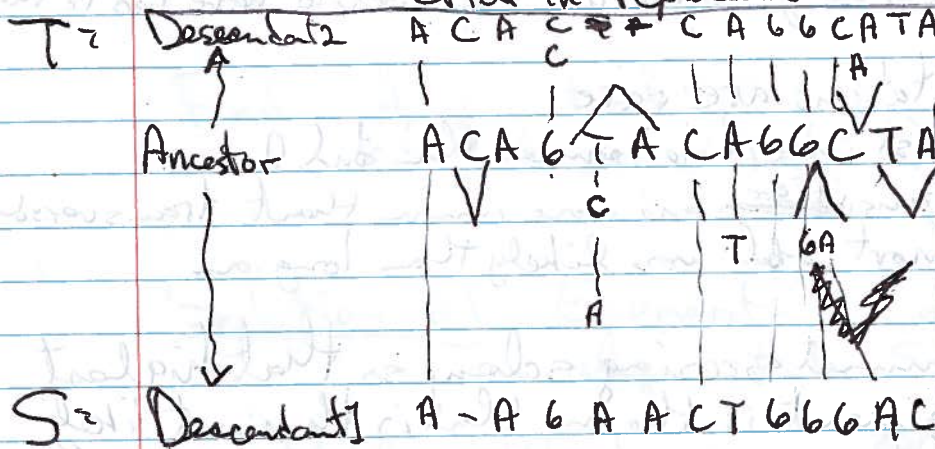 T= Descendant2 A C A C C A G G C A T A
C A
Ancestor A C A G T A C A G G C T A
C
T GA
A
S= Descendant1 A - A G A A C T G G G A C